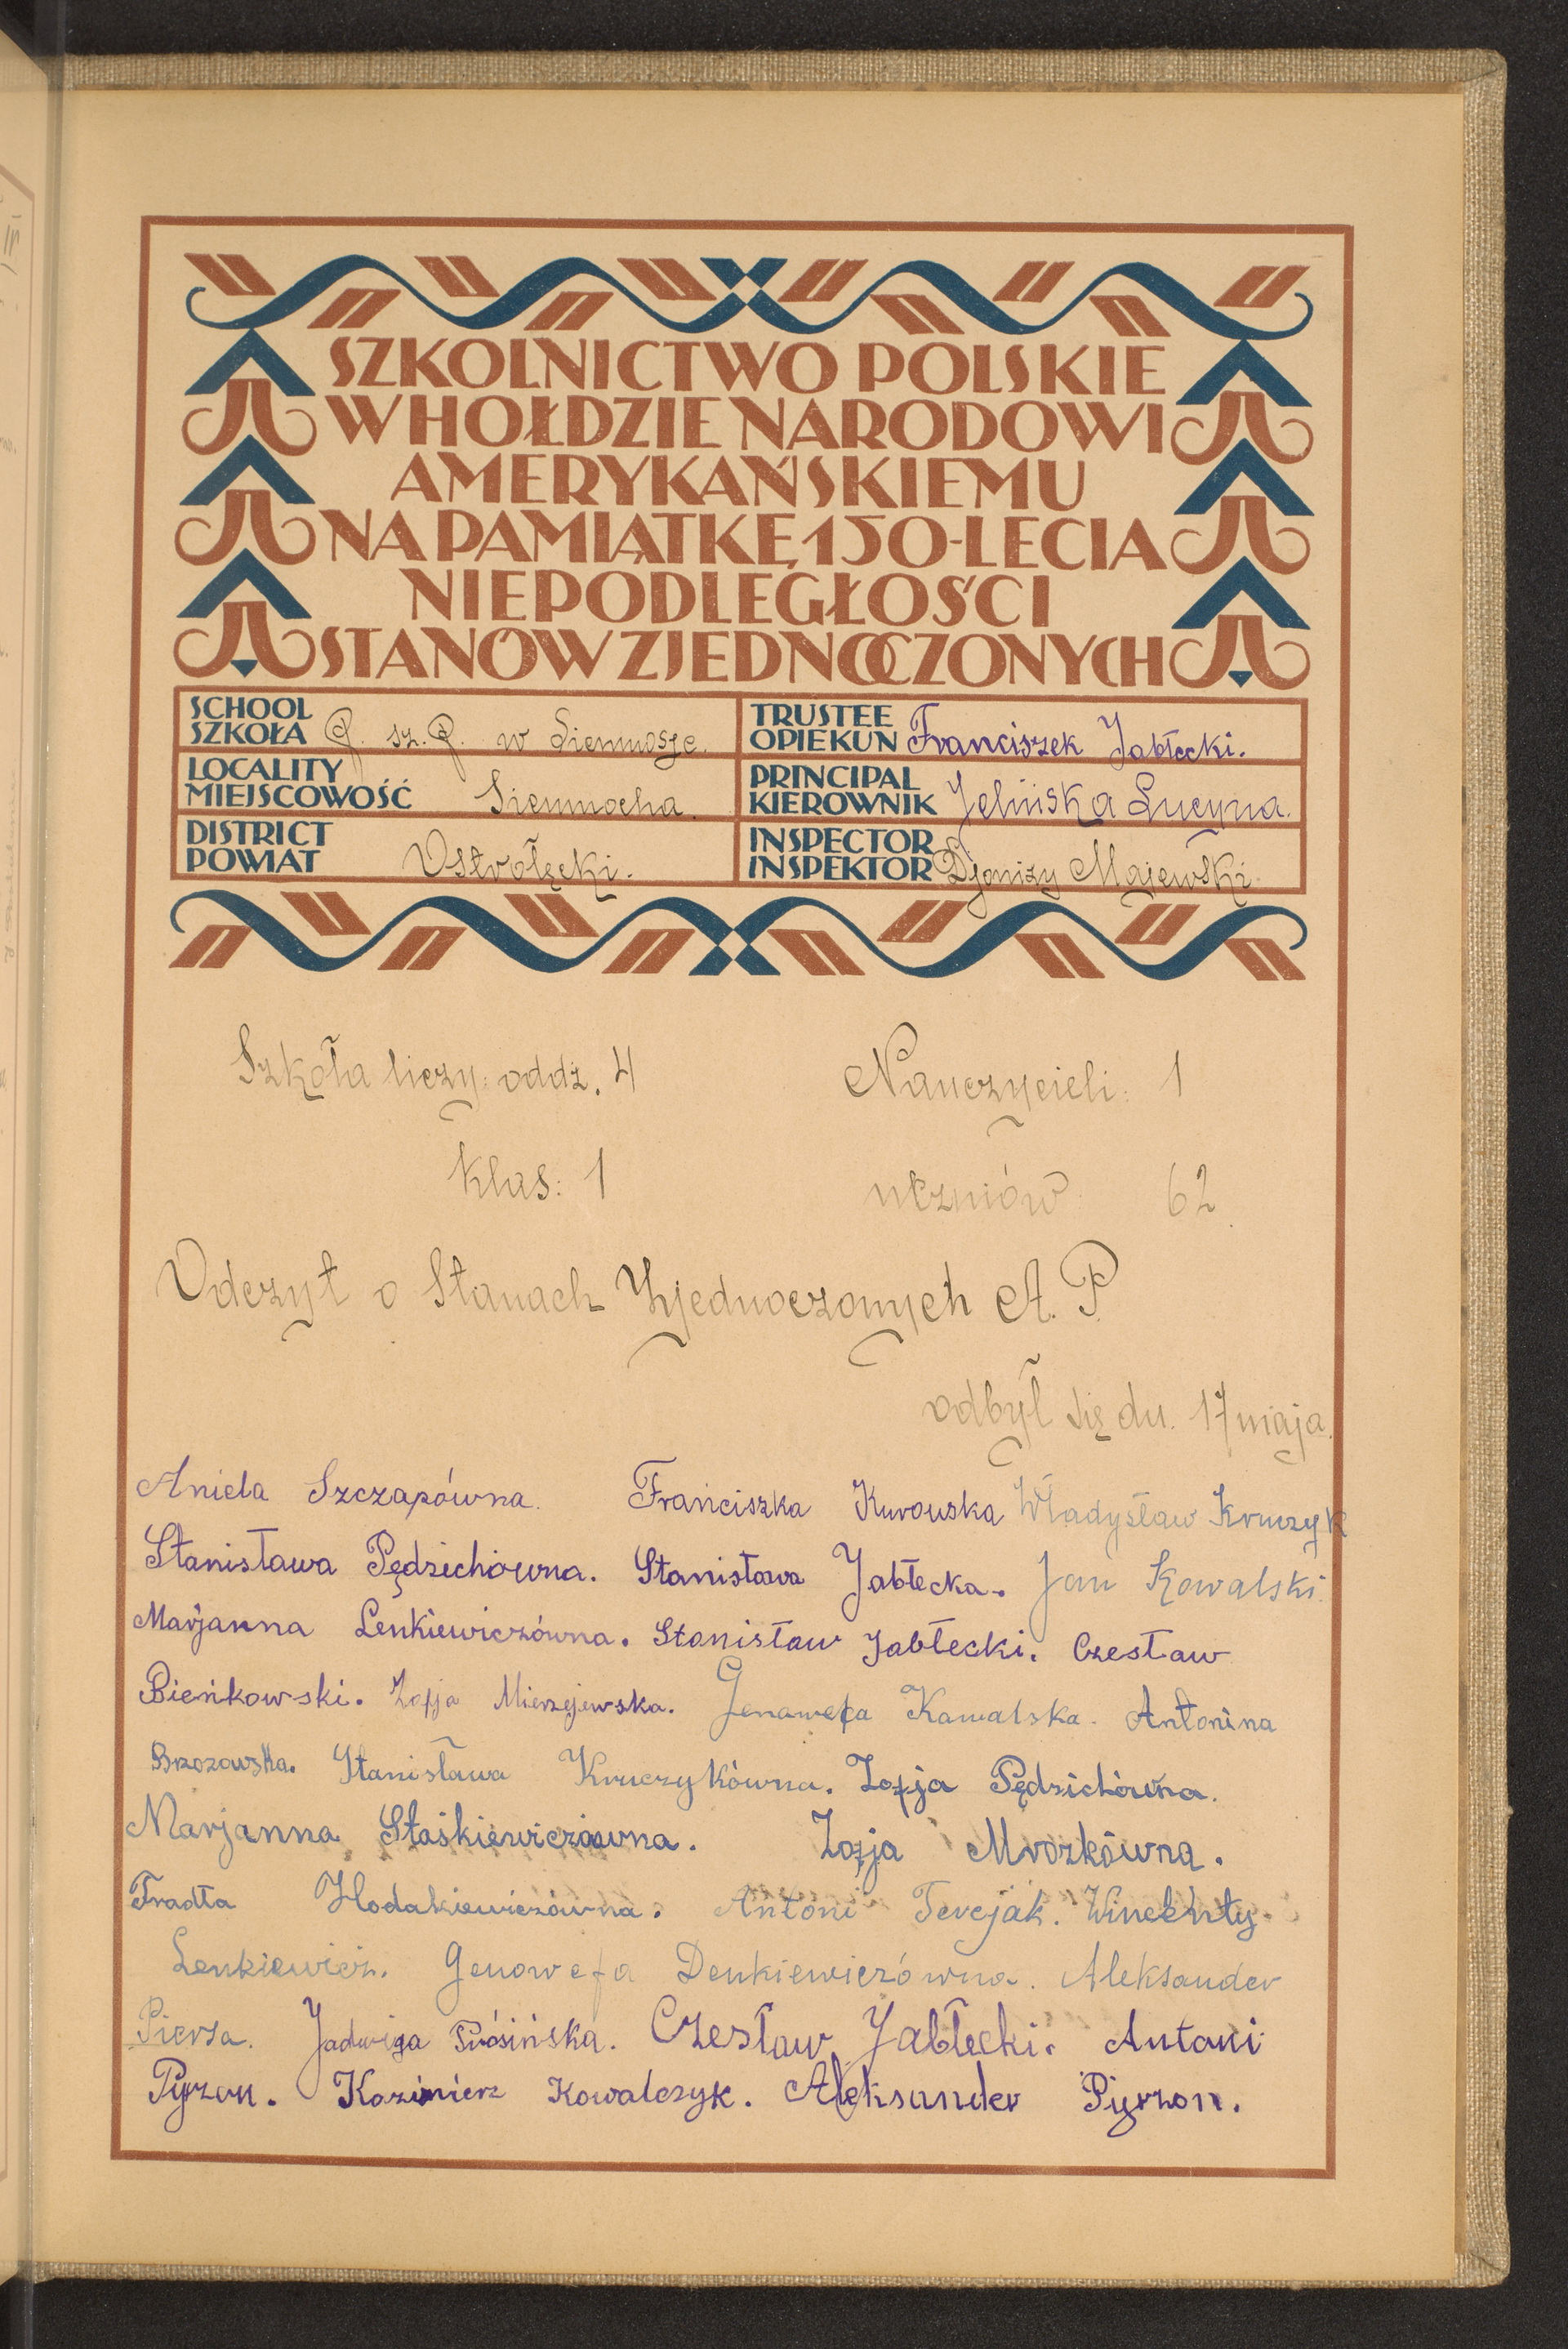 SZKOLNICTWO POLSKIE
W HOŁDZIE NARODOWI
AMERYKAŃSKIEMU
NA PAMIĄTKĘ 150-LECIA
NIEPODLEGŁOŚCI
STANÓW ZJEDNOCZONYCH
SCHOOL
SZKOŁA P. sz. P. w Siemnosze.
TRUSTEE
OPIEKUN Franciszek Jabłecki.
LOCALITY
MIEJSCOWOŚĆ Siemnocha.
PRINCIPAL
KIEROWNIK Jelińska Lucyna.
DISTRICT
POWIAT Ostrołęcki.
INSPECTOR
INSPEKTOR Djonizy Majewski.
Szkoła liczy: oddz. 4 Nauczycieli: 1
klas: 1 uczniów: 62.
Odczyt o Stanach Zjednoczonych A. P.
odbył się dn. 17 maja.
Aniela Szczapówna. Franciszka Kurowska Władysław Kruczyk
Stanisława Pędzichówna. Stanisława Jabłecka. Jan Kowalski.
Marjanna Lenkiewiczówna. Stanisław Jabłecki. Czesław
Bieńkowski. Zofja Mierzejewska. Genowefa Kawalska. Antonina
Brzozowska. Stanisława Kruczykówna. Zofja Pędzichówna.
Marjanna Staśkiewiczówna. Zofja Mrozkówna.
Fradta Hodakiewiczówna. Antoni Terejak. Wincenty
Lenkiewicz. Genowefa Denkiewiczówna. Aleksander
Piersa. Jadwiga Prósińska. Czesław Jabłecki. Antoni
Pyrzon. Kazimierz Kowalczyk. Aleksander Pyrzon.